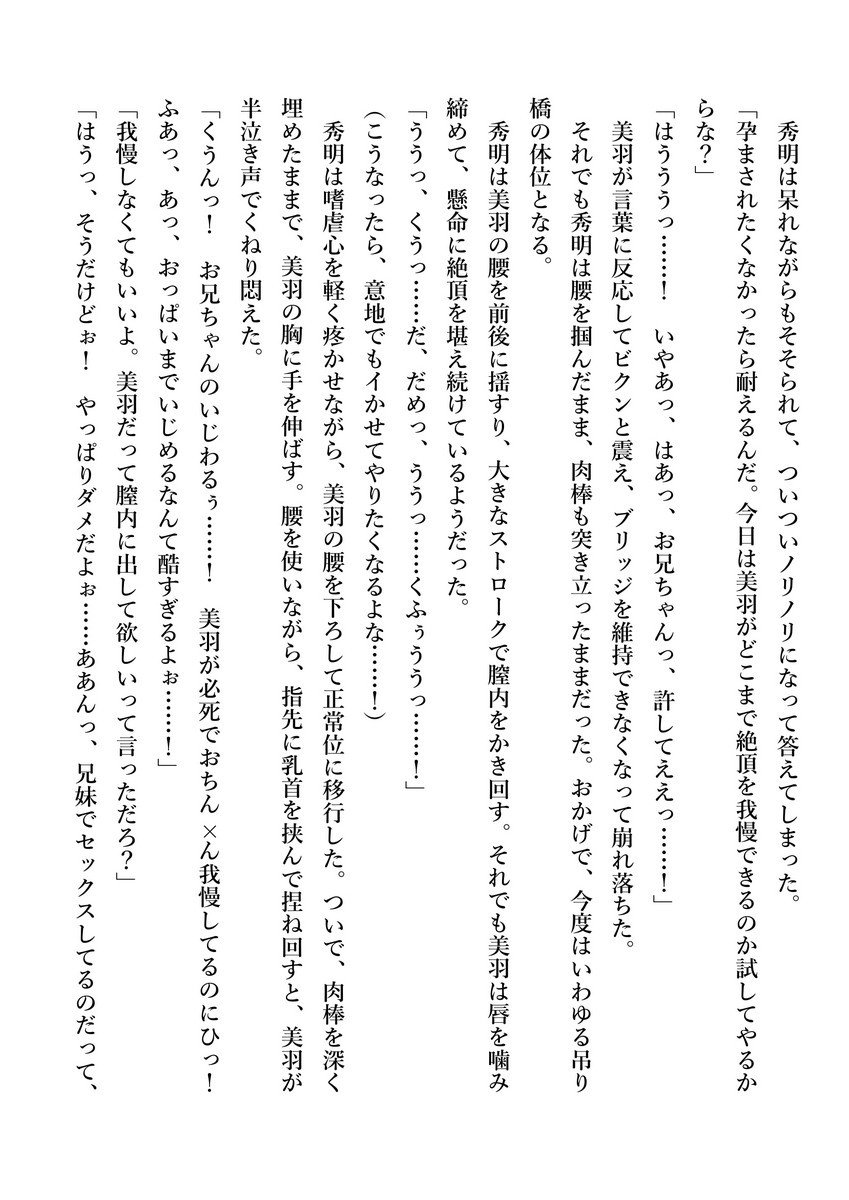 秀明は呆れながらもそそられて、ついついノリノリになって答えてしまった。
「孕まされたくなかったら耐えるんだ。今日は美羽がどこまで絶頂を我慢できるのか試してやるか
らな？」
「はうううっ……！　いやあっ、はあっ、お兄ちゃんっ、許してええっ……！」
美羽が言葉に反応してビクンと震え、ブリッジを維持できなくなって崩れ落ちた。
それでも秀明は腰を掴んだまま、肉棒も突き立ったままだった。おかげで、今度はいわゆる吊り
橋の体位となる。
秀明は美羽の腰を前後に揺すり、大きなストロークで膣内をかき回す。それでも美羽は唇を噛み
締めて、懸命に絶頂を堪え続けているようだった。
「ううっ、くうっ……だ、だめっ、ううっ……くふぅううっ……！」
（こうなったら、意地でもイかせてやりたくなるよな……！）
秀明は嗜虐心を軽く疼かせながら、美羽の腰を下ろして正常位に移行した。ついで、肉棒を深く
埋めたままで、美羽の胸に手を伸ばす。腰を使いながら、指先に乳首を挟んで捏ね回すと、美羽が
半泣き声でくねり悶えた。
「くうんっ！　お兄ちゃんのいじわるぅ……！　美羽が必死でおちん×ん我慢してるのにひっ！
ふあっ、あっ、おっぱいまでいじめるなんて酷すぎるよぉ……！」
「我慢しなくてもいいよ。美羽だって膣内に出して欲しいって言っただろ？」
「はうっ、そうだけどぉ！　やっぱりダメだよぉ……ああんっ、兄妹でセックスしてるのだって、